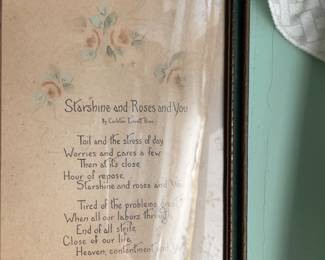 Starshine and Roses and You
By Carleton Everett
Toil and the stress of day,
Worries and cares a few
Then at its close
Hour of repose,
Starshine and roses and You
Tired of the problems great
When all our labors through,
End of all strife,
Close of our life,
Heaven, contentment and